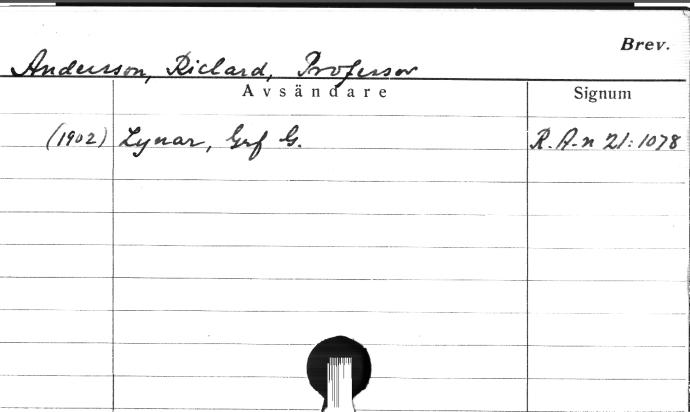 Brev.
Andersson, Richard, Professor
Avsändare Signum
(1902) Lynar, Grf G. R.A.n 21:1078